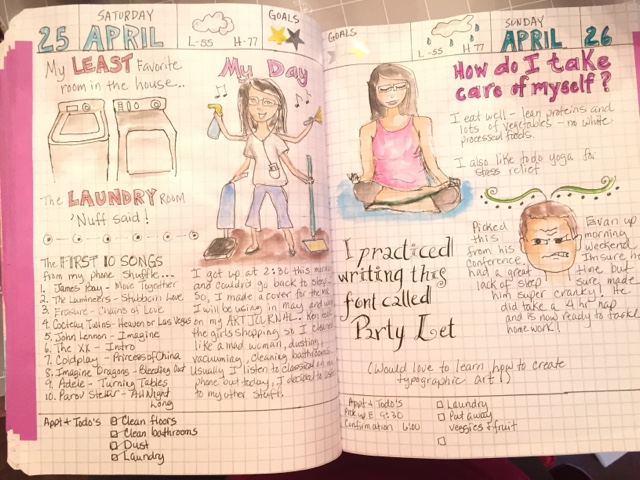 SATURDAY
25 APRIL
L-55 H-77
GOALS
My LEAST Favorite
room in the house...
The LAUNDRY ROOM
'Nuff said!
My Day
The FIRST 10 SONGS
from my phone shuffle...
1. James Bay - Move Together
2. The Lumineers - Stubborn Love
3. Erasure - Chains of Love
4. Cocteau Twins - Heaven or Las Vegas
5. John Lennon - Imagine
6. The XX - Intro
7. Coldplay - Princess of China
8. Imagine Dragons - Bleeding Out
9. Adele - Turning Tables
10. Parov Stelar - All Night
Long
I got up at 2:30 this
and couldn't go back to sleep.
So, I made a cover for the
I will be using in may and
on my ART JOURNAL. Ken
the girls shopping so I cleaned
like a mad woman, dusting,
vacuuming, cleaning bathrooms.
Usually I listen to classical on my
phone but today, I decided to
to my other stuff.
Appt + Todo's
Clean floors
Clean bathrooms
Dust
Laundry
GOALS
L-55 H-77
SUNDAY
APRIL 26
How do I take
care of myself?
I eat well - lean proteins and
lots of vegetables - no white
processed foods.
I also like to do yoga for
stress relief
I practiced
writing this
font called
Party Let
(Would love to learn how to create
typographic art!)
Picked
this
from his
conference
had a great
lack of sleep
him super cranky! He
did take a 4 hr nap
and is now ready to tackle
homework!
Evan up
morning
weekend.
I'm sure he
time but
sure made
Appt + Todo's
9:30
Confirmation 6:00
Laundry
Put away
veggies & fruit